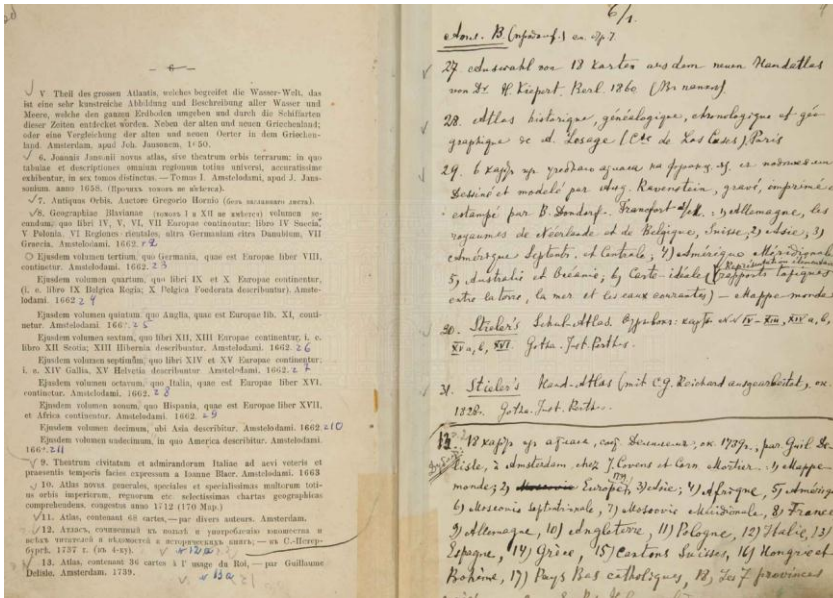 6
V Theil des grossen Atlantis, welches begreifet die Wasser-Welt, das
ist eine sehr kunstreiche Abbildung und Beschreibung aller Wasser und
Meere, welche den ganzen Erdboden umgeben und durch die Schiffarten
dieser Zeiten entdecket worden. Neben der alten und neuen Griechenland;
oder eine Vergleichung der alten und neuen Oerter in dem Griechen-
land. Amsterdam, apud Joh. Janssonem, 1650.
6. Joannis Jansonii novus atlas, sive theatrum orbis terrarum: in quo
tabulae et descriptiones omnium regionum totius universi, accuratissime
exhibentur, in sex tomos distinctus. — Tomus I. Amstelodami, apud J. Jans-
sonium. anno 1658. (Прочихъ томовъ не имѣется).
7. Antiquus Orbis, Auctore Gregorio Hornio (безъ заглавнаго листа).
8. Geographiae Blavianae (томовъ I и XII не имѣется) volumen se-
cundum, quo libri IV, V, VI, VII Europae continentur: libro IV Suecia,
V Polonia, VI Regiones orientales, ultra Germaniam citra Danubium, VII
Graecia. Amstelodami. 1662. 2
Ejusdem volumen tertium, quo Germania, quae est Europae liber VIII,
continetur. Amstelodami. 1662. 3
Ejusdem volumen quartum, quo libri IX et X Europae continentur,
(i. e. libro IX Belgica Regia; X Belgica Foederata describuntur). Amste-
lodami. 1662 4
Ejusdem volumen quintum, quo Anglia, quae est Europae lib. XI, conti-
netur. Amstelodami. 1662. 5
Ejusdem volumen sextum, quo libri XII, XIII Europae continentur, i. e.
libro XII Scotia; XIII Hibernia describuntur. Amstelodami. 1662. 6
Ejusdem volumen septimum, quo libri XIV et XV Europae continentur:
i. e. XIV Gallia, XV Helvetia describuntur. Amstelodami. 1662. 7
Ejusdem volumen octavum, quo Italia, quae est Europae liber XVI,
continetur. Amstelodami. 1662. 8
Ejusdem volumen nonum, quo Hispania, quae est Europae liber XVII,
et Africa continentur. Amstelodami. 1662. 9
Ejusdem volumen decimum, ubi Asia describitur. Amstelodami. 1662. 10
Ejusdem volumen undecimum, in quo America describitur. Amstelodami.
1662. 11
9. Theatrum civitatum et admirandorum Italiae ad aevi veteris et
praesentis temporis faciem expressum a Ioanne Blaeu. Amstelodami. 1663
10. Atlas novus generales, speciales et specialissimas multorum toti-
us orbis imperiorum, regnorum etc. selectissimas chartas geographicas
comprehendens, congestus anno 1712 (170 Map.)
11. Atlas, contenant 68 cartes, — par divers auteurs. Amsterdam.
12. Атласъ, сочиненный къ пользѣ и употребленію юношества и
всѣхъ читателей вѣдомостей и историческихъ книгъ, — въ С.-Петер-
бургѣ. 1737 г. (въ 4-ку).
13. Atlas, contenant 36 cartes à l'usage du Roi, — par Guillaume
Delisle. Amsterdam. 1739.
6/1.
27. Auswahl von 18 Karten aus dem neuen Handatlas
von Dr. H. Kiepert. Berl. 1860
28. Atlas historique, généalogique, chronologique et géo-
graphique de A. Lesage (Cte de Las Cases), Paris
29. 6 картъ
Dessiné et modelé par Aug. Ravenstein, gravé, imprimé e
estampé par B. Dondorf. Francfort s/M. 1) Allemagne, les
royaumes de Néerlande et de Belgique, Suisse, 2) Asie; 3)
Amérique Septentr. et Centrale; 4) Amérique Méridionale
5) Australie et Océanie; 6) Carte-idéale (Représentation élémentaire
rapports topiques
entre la terre, la mer et les eaux courantes) — Mappe-monde
30. Stieler's Schul-Atlas
XV a, b, XVI. Gotha. Just. Perthes.
31. Stieler's Hand-Atlas (mit C.G. Reichard ausgearbeitet, ок.
1828. Gotha. Just. Perthes.
13. 18 картъ изъ атласа, ок. 1739г., par Guil De-
lisle, à Amsterdam chez J. Covens et Corn. Mortier: 1) Mappe-
monde; 2) Europe, 3) Asie; 4) Afrique, 5) Amériq
6) Moscovie septentrionale, 7) Moscovie Méridionale, 8) France
9) Allemagne, 10) Angleterre, 11) Pologne, 12) Italie, 13)
Espagne, 14) Grèce, 15) Cantons Suisses, 16) Hongrie et
Bohême, 17) Pays Bas catholiques, 18) Les 7 provinces